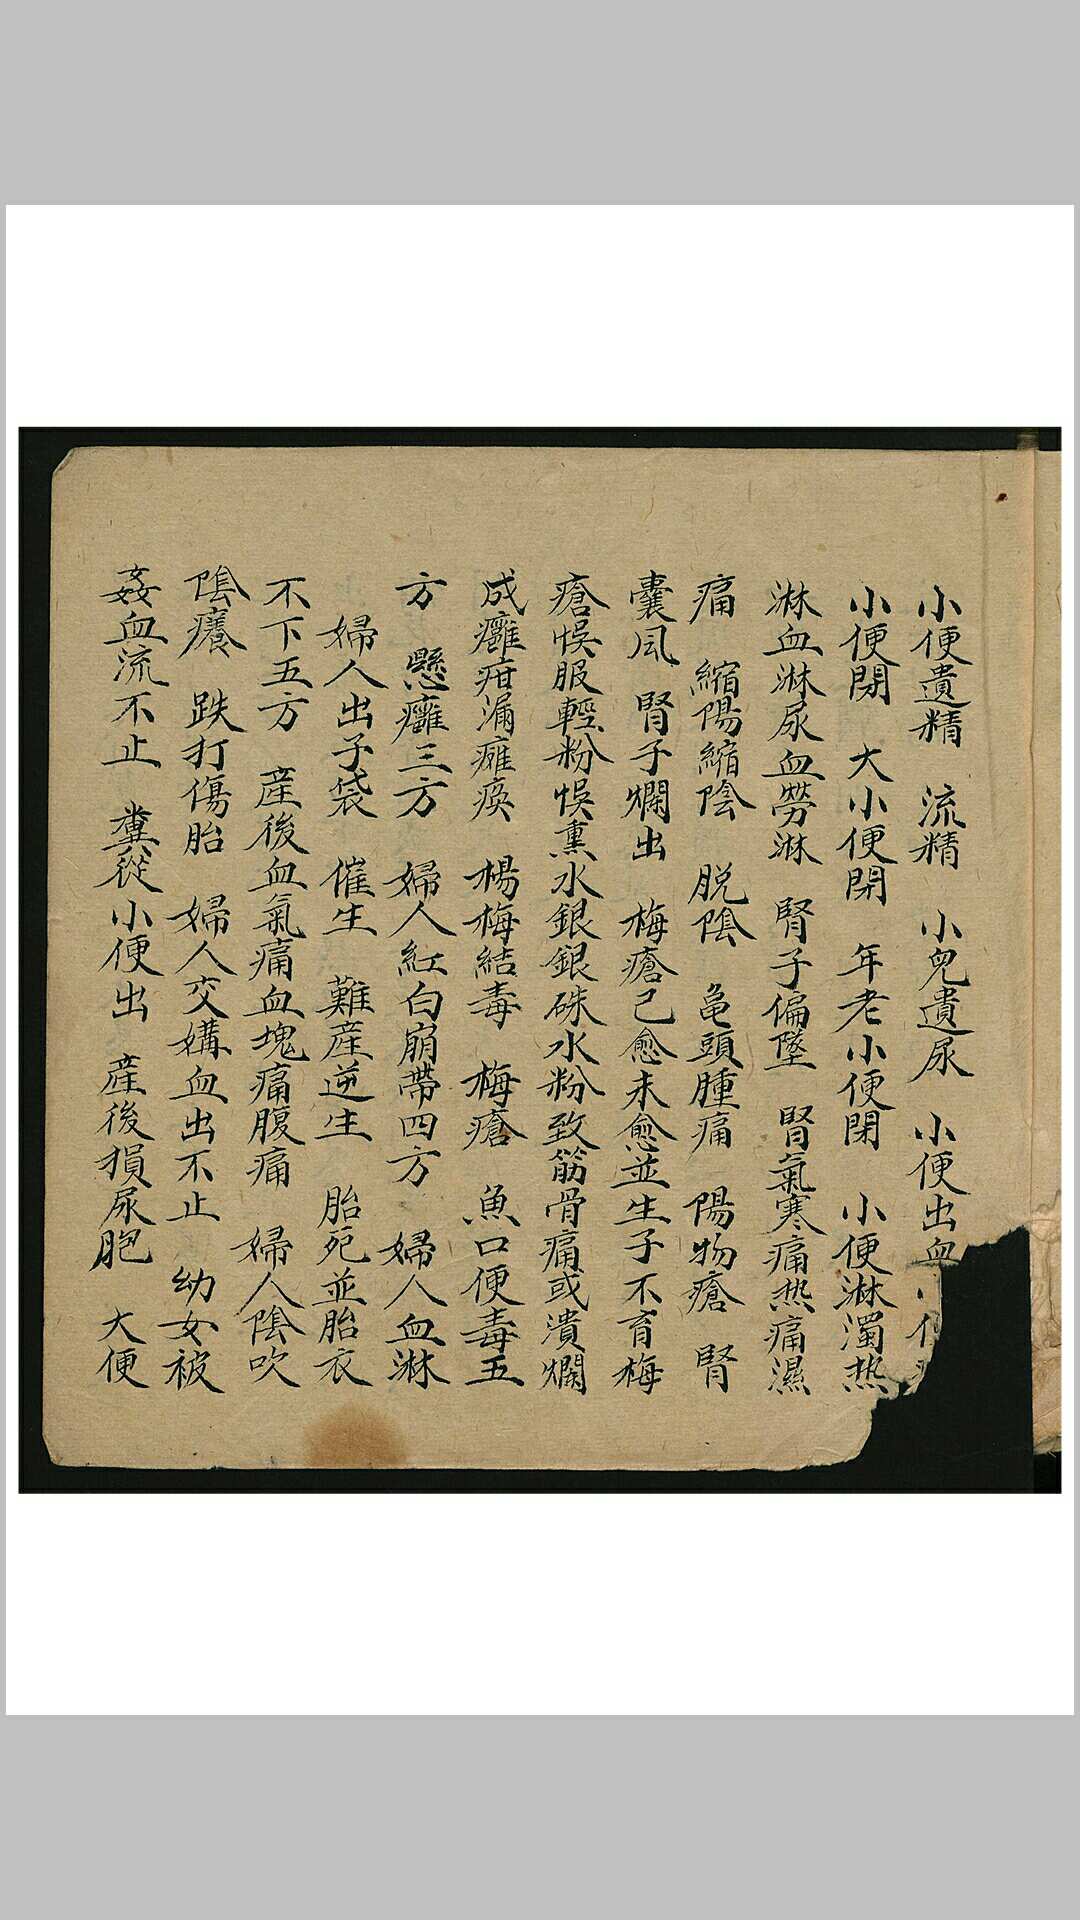 小便遺精　流精　小兒遺尿　小便出血　小便
小便閉　大小便閉　年老小便閉　小便淋濁热
淋血淋尿血勞淋　腎子偏墜　腎氣寒痛热痛濕
痛　縮陽縮陰　脱陰　龟頭腫痛　陽物瘡　腎
囊風　腎子爛出　梅瘡已愈未愈並生子不育梅
瘡悮服輕粉悮熏水銀銀硃水粉致筋骨痛或潰爛
成癰疳漏癱瘓　楊梅結毒　梅瘡　魚口便毒五
方　懸癰三方　婦人紅白崩帶四方　婦人血淋
婦人出子袋　催生　難産逆生　胎死並胎衣
不下五方　産後血氣痛血塊痛腹痛　婦人陰吹
陰癢　跌打傷胎　婦人交媾血出不止　幼女被
姦血流不止　糞從小便出　産後損尿胞　大便